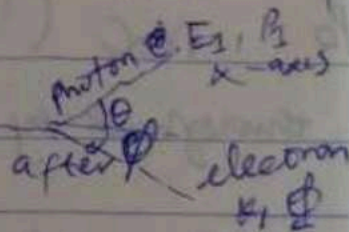 photon e. E1, P1
x-axis
θ
after φ
electron
K, φ